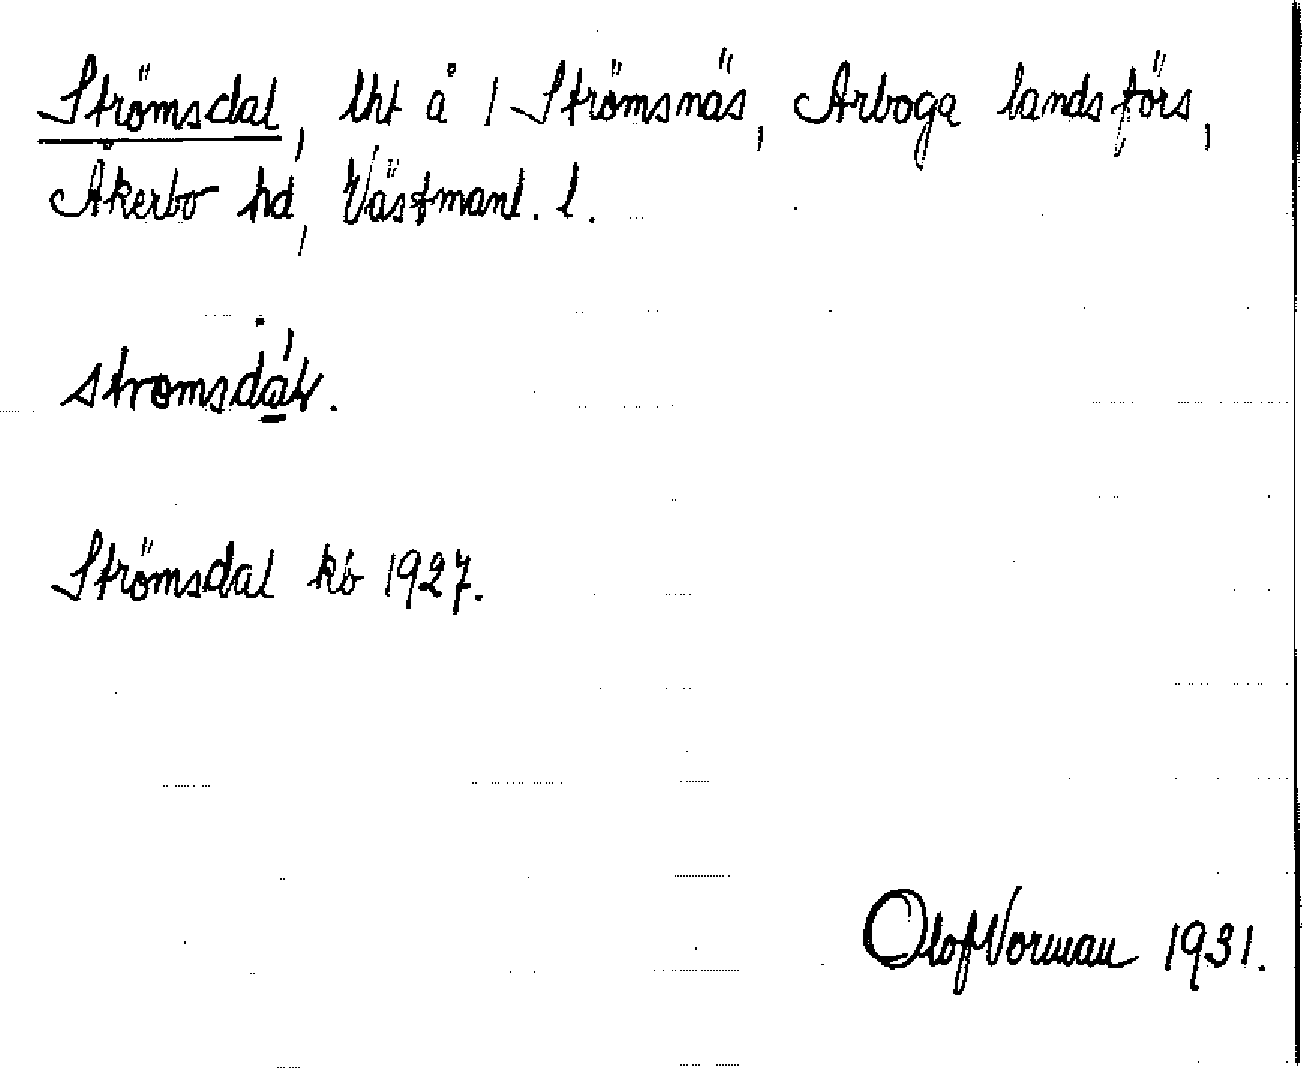 Strömsdal, lht å 1 Strömsnäs, Arboga landsförs,
Åkerbo hd, Västmanl. l.
Strömsdal kb 1927.
Olof Norman 1931.